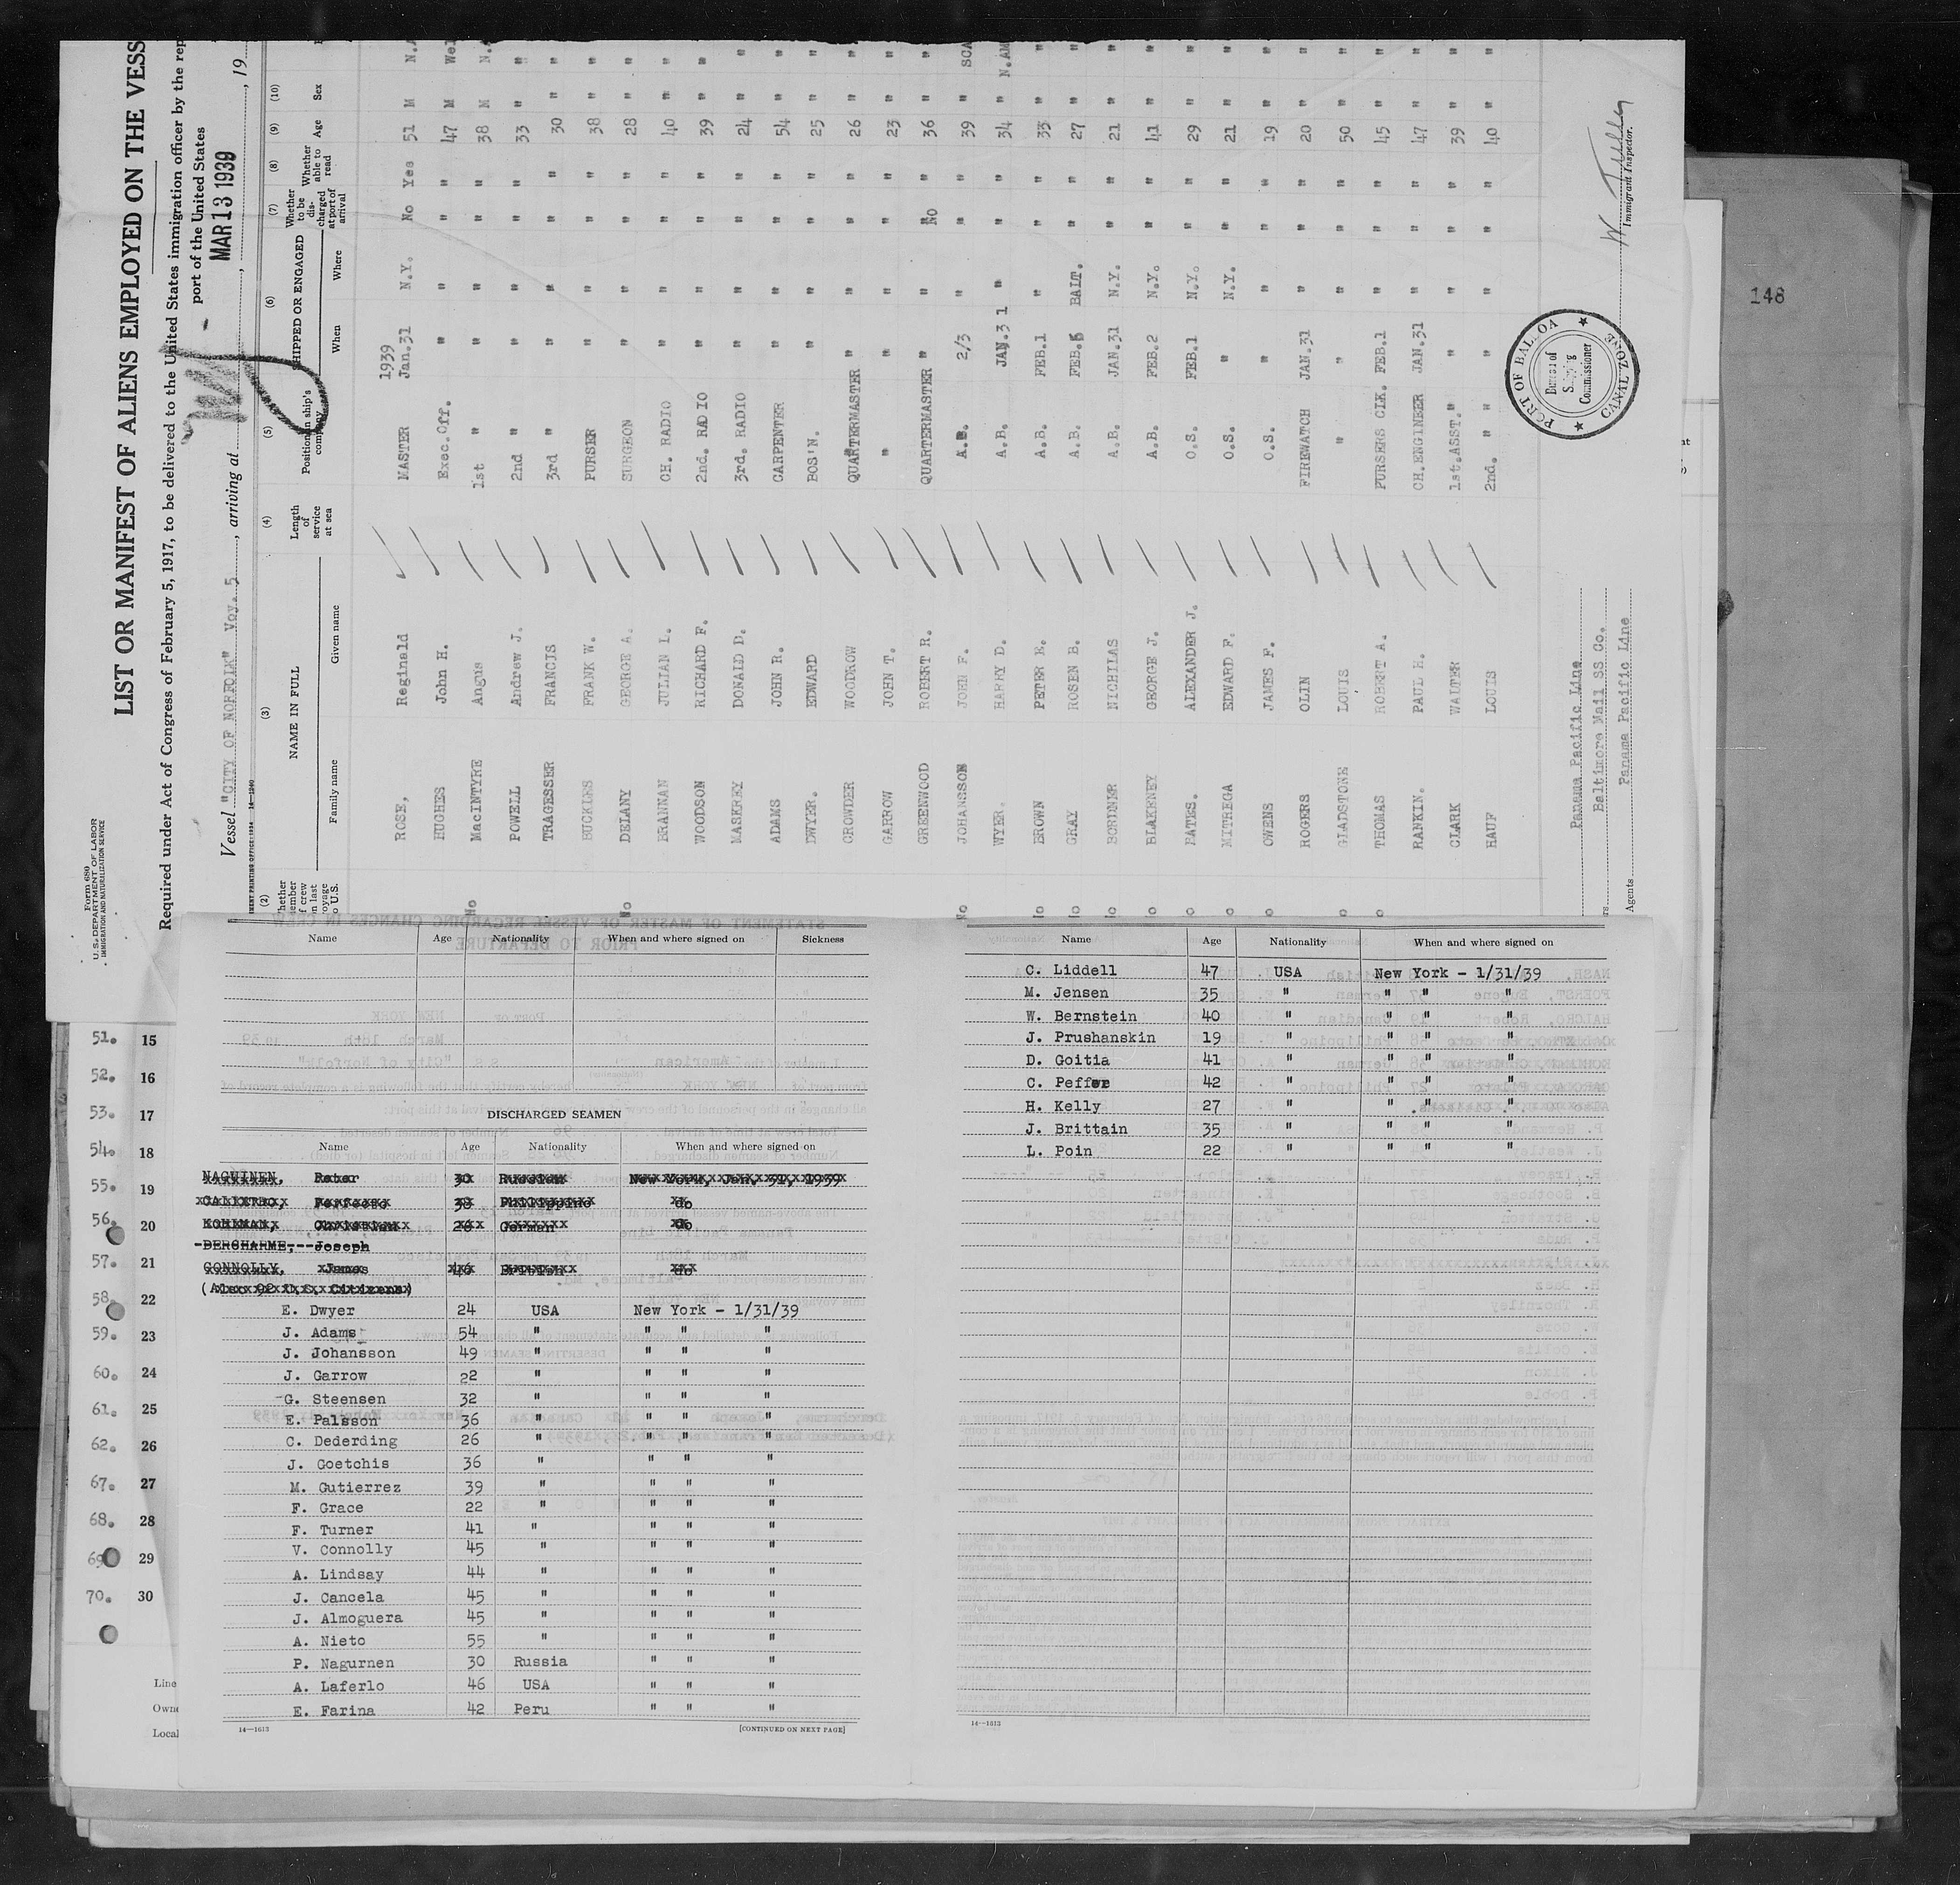 Form 680
U. S. DEPARTMENT OF LABOR
IMMIGRATION AND NATURALIZATION SERVICE
LIST OR MANIFEST OF ALIENS EMPLOYED ON THE VESS
Required under Act of Congress of February 5, 1917, to be delivered to the United States immigration officer by the rep
port of the United States
Vessel "CITY OF NORFOLK" Voy. 5, arriving at MAR 13 1939, 19
(2) (3) (4) (5) (6) (7) (8) (9) (10)
NAME IN FULL
Length of service at sea
Position in ship's company
SHIPPED OR ENGAGED
Whether to be discharged at port of arrival
Whether able to read
Age
Sex
Family name Given name When Where
1939
ROSE, Reginald MASTER Jan.31 N.Y. No Yes 51 M
HUGHES John H. Exec.Off. " " " " 47 M
No MacINTYRE Angus 1st " " " " " 38 M
POWELL Andrew J. 2nd " " " " " 33 "
TRAGESSER FRANCIS 3rd " " " " " 30 "
BUCKLES FRANK W. PURSER " " " " 38 " "
No DELANY GEORGE A. SURGEON " " " " 28 " "
BRANNAN JULIAN L. CH. RADIO " " " " 40 " "
WOODSON RICHARD F. 2nd. RADIO " " " " 39 " "
MASEREY DONALD D. 3rd. RADIO " " " " 24 " "
ADAMS JOHN R. CARPENTER " " " " 54 " "
DWYER. EDWARD BOS'N. " " " " 25 " "
CROWDER WOODROW QUARTERMASTER " " " " 26 " "
GARROW JOHN T. " " " " " 23 " "
GREENWOOD ROBERT R. QUARTERMASTER " " No " 36 " "
No JOHANSSON JOHN F. A.B. 2/3 " " " 39 " SCA
WYER. HARRY D. A.B. JAN.31 " " " 34 " N.AM
BROWN PETER E. A.B. FEB.1 " " " 33 " "
GRAY ROSEN B. A.B. FEB.5 BALT. " " 27 " "
BORDNER NICHILAS A.B. JAN.31 N.Y. " " 21 " "
BLAKENEY GEORGE J. A.B. FEB.2 N.Y. " " 41 " "
BATES. ALEXANDER J. O.S. FEB.1 N.Y. " " 29 " "
MITREGA EDWARD F. O.S. " N.Y. " " 21 " "
OWENS JAMES F. O.S. " " " " 19 " "
ROGERS OLIN FIREWATCH JAN.31 " " " 20 " "
GLADSTONE LOUIS " " " " " 50 " "
THOMAS ROBERT A. PURSERS CLK. FEB.1 " " " 45 " "
RANKIN. PAUL H. CH.ENGINEER JAN.31 " " " 47 " "
CLARK WALTER 1st.ASST." " " " " 39 " "
HAUF LOUIS 2nd. " " " " " " 40 " "
Panama Pacific Line
Baltimore Mail SS Co.
Agents Panama Pacific Line
PORT OF BALBOA
Bureau of Shipping Commissioner
CANAL ZONE
Immigrant Inspector.
148
51. 15
52. 16
53. 17
54. 18
55. 19
56. 20
57. 21
58. 22
59. 23
60. 24
61. 25
62. 26
67. 27
68. 28
69 29
70. 30
Line
Owne
Local
Name Age Nationality When and where signed on Sickness
DISCHARGED SEAMEN
Name Age Nationality When and where signed on
NAGUINEN, Peter 30 Russian New York, Jan, 31, 1939
GALITERO, Perfecto 38 Philippino do
KOHLMAN, Christian 28 German do
DERCHARME, Joseph
CONNOLLY, James 46 British do
(Also 92 U.S. Citizens)
E. Dwyer 24 USA New York - 1/31/39
J. Adams 54 " " " "
J. Johansson 49 " " " "
J. Garrow 22 " " " "
G. Steensen 32 " " " "
E. Palsson 36 " " " "
C. Dederding 26 " " " "
J. Goetchis 36 " " " "
M. Gutierrez 39 " " " "
F. Grace 22 " " " "
F. Turner 41 " " " "
V. Connolly 45 " " " "
A. Lindsay 44 " " " "
J. Cancela 45 " " " "
J. Almoguera 45 " " " "
A. Nieto 55 " " " "
P. Nagurnen 30 Russia " " "
A. Laferlo 46 USA " " "
E. Farina 42 Peru " " "
14—1613 [CONTINUED ON NEXT PAGE]
Name Age Nationality When and where signed on
C. Liddell 47 USA New York - 1/31/39
M. Jensen 35 " " " "
W. Bernstein 40 " " " "
J. Prushanskin 19 " " " "
D. Goitia 41 " " " "
C. Peffer 42 " " " "
H. Kelly 27 " " " "
J. Brittain 35 " " " "
L. Poin 22 " " " "
14—1613